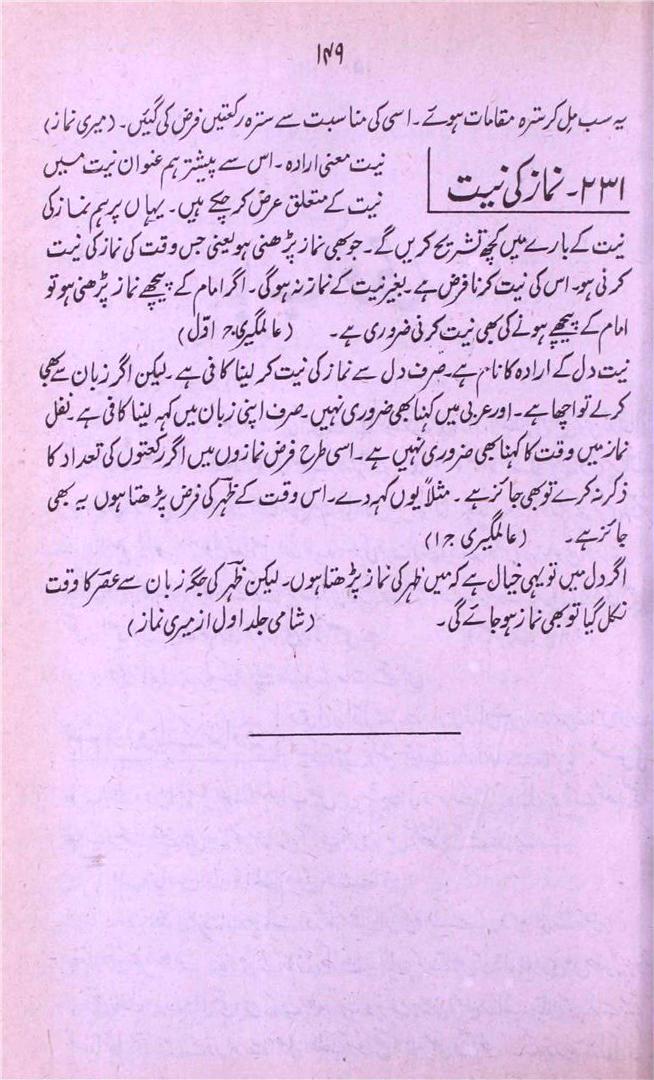 ۱۴۹
یہ سب مل کر سترہ مقامات ہوئے۔ اسی کی مناسبت سے سترہ رکعتیں فرض کی گئیں۔ (میری نماز)
۲۳۱۔ نماز کی نیت
نیت معنی ارادہ۔ اس سے پیشتر ہم عنوان نیت میں
نیت کے متعلق عرض کر چکے ہیں۔ یہاں پر ہم نماز کی
نیت کے بارے میں کچھ تشریح کریں گے۔ جو بھی نماز پڑھنی ہو یعنی جس وقت کی نماز کی نیت
کرنی ہو۔ اس کی نیت کرنا فرض ہے۔ بغیر نیت کے نماز نہ ہوگی۔ اگر امام کے پیچھے نماز پڑھنی ہو تو
امام کے پیچھے ہونے کی بھی نیت کرنی ضروری ہے۔ (عالمگیری ج اوّل)
نیت دل کے ارادہ کا نام ہے۔ صرف دل سے نماز کی نیت کر لینا کافی ہے۔ لیکن اگر زبان سے بھی
کرلے تو اچھا ہے۔ اور عربی میں کہنا بھی ضروری نہیں۔ صرف اپنی زبان میں کہہ لینا کافی ہے۔ نفل
نماز میں وقت کا کہنا بھی ضروری نہیں ہے۔ اسی طرح فرض نمازوں میں اگر رکعتوں کی تعداد کا
ذکر نہ کرے تو بھی جائز ہے۔ مثلاً یوں کہہ دے۔ اس وقت کے ظہر کی فرض پڑھتا ہوں یہ بھی
جائز ہے۔ (عالمگیری ج۱)
اگر دل میں تو یہی خیال ہے کہ میں ظہر کی نماز پڑھتا ہوں۔ لیکن ظہر کی جگہ زبان سے عصر کا وقت
نکل گیا تو بھی نماز ہو جائے گی۔ (شامی جلد اول از میری نماز)